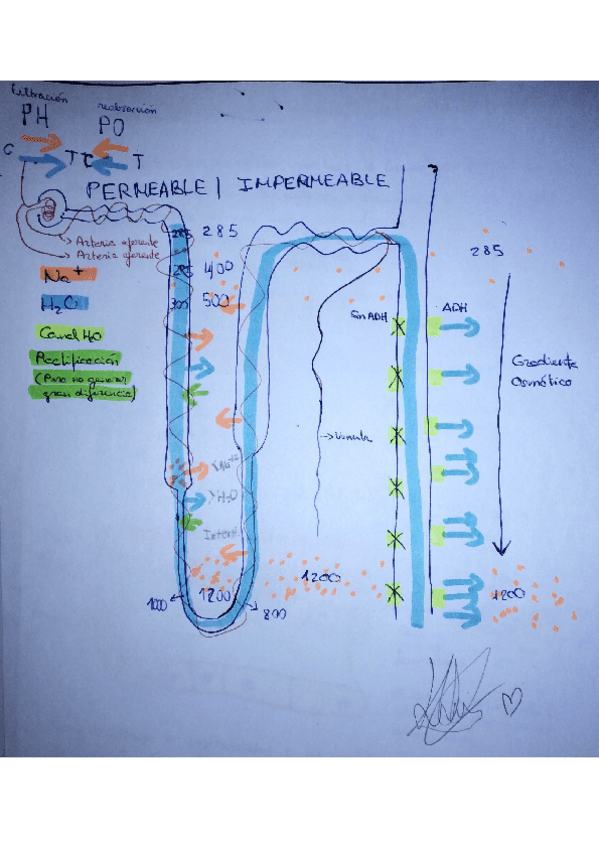 filtración reabsorción
PH PO
C TC T
PERMEABLE | IMPERMEABLE
→ Arteria eferente
→ Arteria aferente
Na+
H2O
Canal H2O
Rectificación
(Para no generar
gran diferencia)
285 285
285 400
300 500
285
Sin ADH ADH
Gradiente
Osmótico
→ Vénula
H2O
1200
1200
1200
1000
800